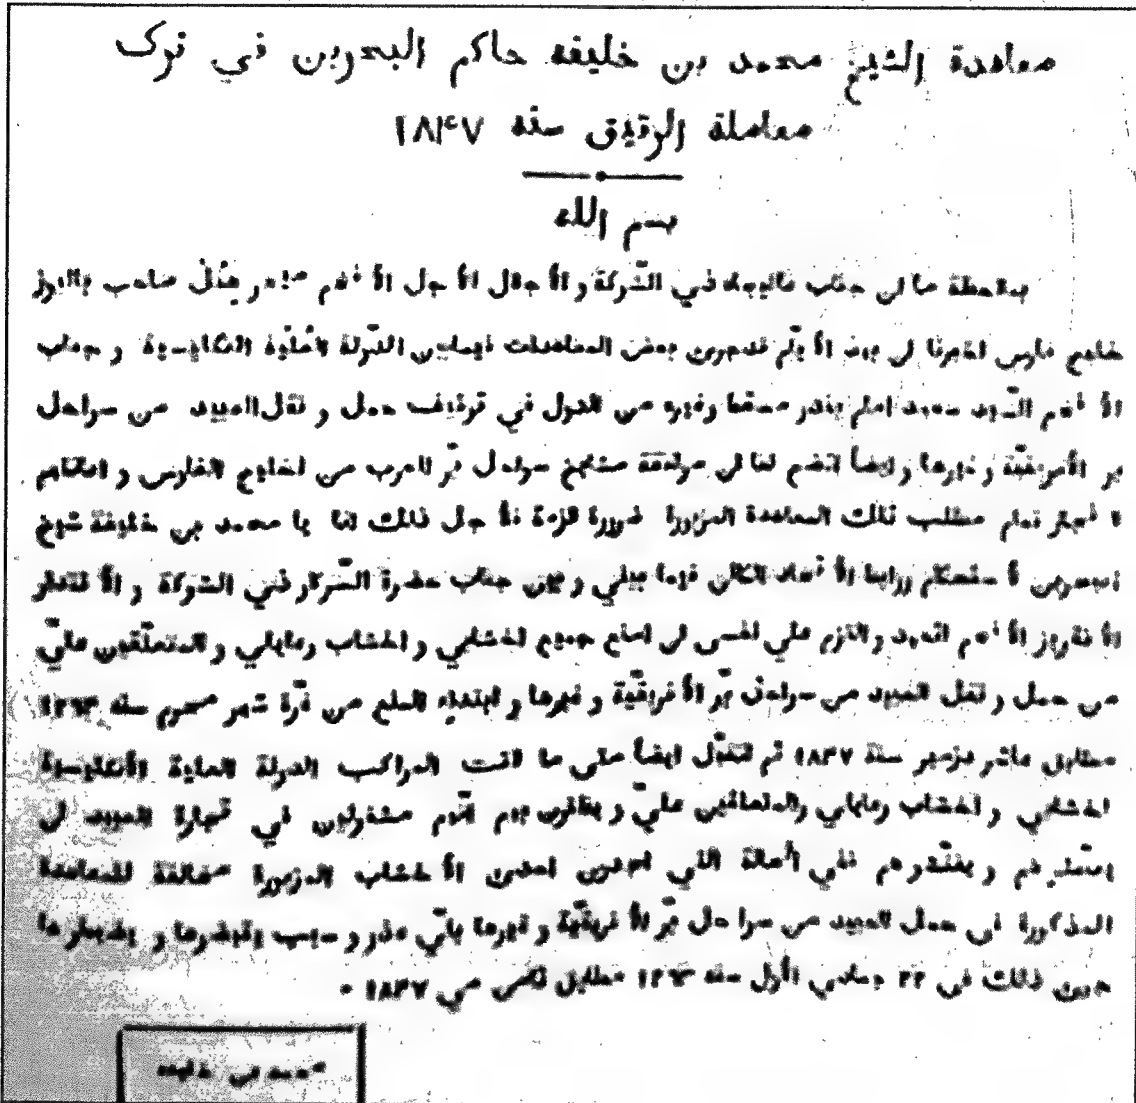 معاهدة الشيخ محمد بن خليفه حاكم البحرين في ترك
معاملة الرقيق سنه ١٨٤٧
بسم الله
بملاحظة ما لى جناب في الشركة و الأجلال الأجل الأفخم صاحب باليوز
خليج فارس لى بعض المعاهدات فيمابين الدولة العلية الانكليسية و جناب
الأفخم السيد سعيد امام بندر مسقط وغيره من الدول في توقيف حمل و نقل العبيد من سواحل
بر الأفريقية و غيرها و ايضاً اتضح لنا لى موافقة مشايخ سواحل بر العرب من الخليج الفارس و
تمام مطلب تلك المعاهدة المزبورة ضرورة لازمة فلأجل ذلك انا يا محمد بن خليفة شيخ
البحرين لأستحكام روابط الأتحاد الكائن فيما بيني و بين جناب حضرة السركار في الشركة و الأقتدار
الأنقريز الأفخم اتعهد و التزم علي نفسى لى امنع جميع اخشابي و اخشاب رعايايي و المتعلقين عليّ
من حمل و نقل العبيد من سواحل برّ الأفريقيّة و غيرها و ابتداء المنع من غرّة شهر محرم سنه ١٢٦٤
مطابق عاشر دزمبر سنة ١٨٤٧ ثم نتقبّل ايضاً متى ما لاقت المراكب الدولة العلية الأنكليسية
اخشابي و اخشاب رعايايي والمتعلقين عليّ و يظنون بهم انهم مشغولين في تجارة العبيد لى
و يفتشوهم ففي الحالة التي الأخشاب المزبورة مخالفة للمعاهدة
المذكورة فى حمل العبيد من سواحل برّ الأفريقيّة و غيرها بأيّ عذر و سبب يقبضوها و يضبطوها
حرر ذلك فى ٢٢ جمادي الأول سنه ١٢٦٣ مطابق ثامن مي ١٨٤٧
محمد بن خليفه